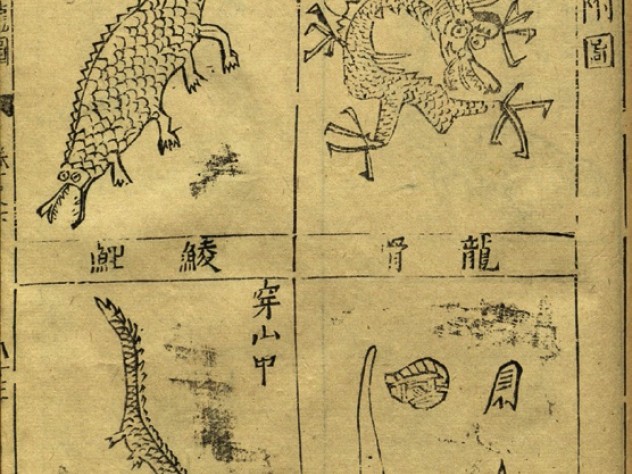 圖
龍骨
鯪鯉
穿山甲